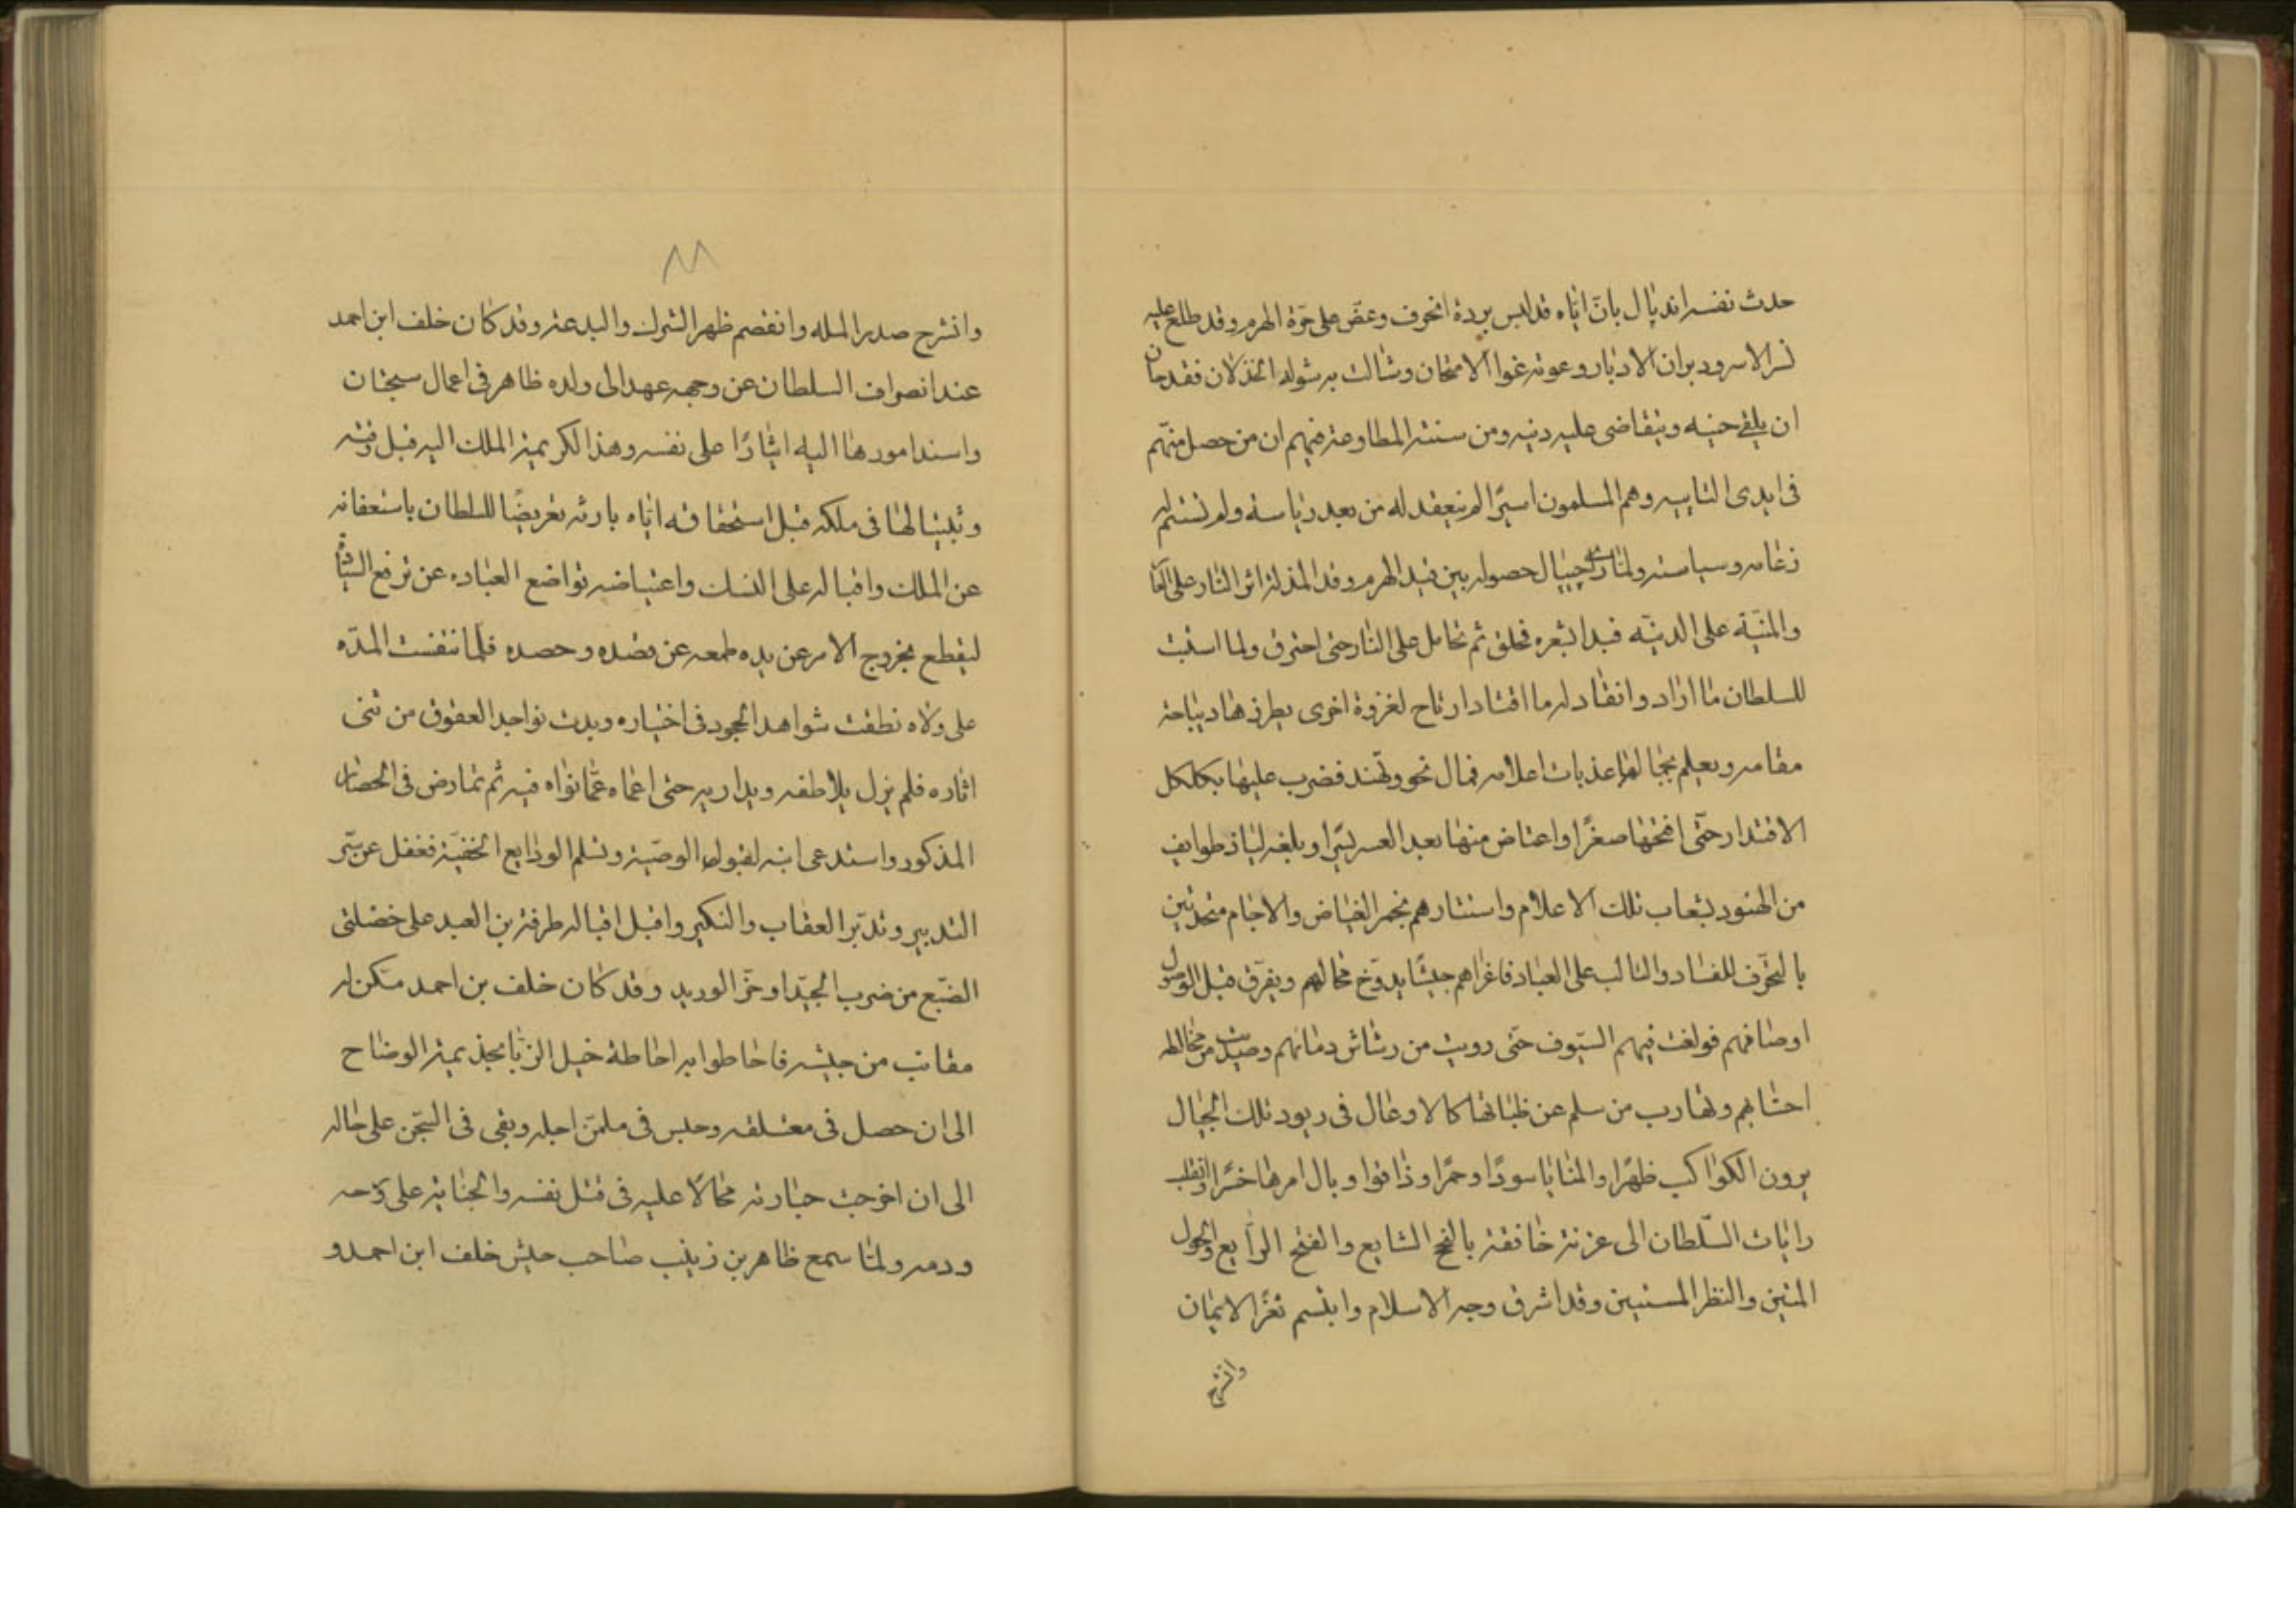 حدث نفسه اندپال بان اباه قد لبس بردة الخوف وعض على حرة الهرم وقد طلع عليه
نسر الاسر ودبران الادبار وعوته عوا الامتحان وشالت به شولة الخذلان فقد حان
ان يلقى حينه ويتقاضى عليه دينه ومن سنته المطاوعة فيهم ان من حصل منهم
فى ايدى وهم المسلمون اسيرا لم ينعقد له من بعد رياسة ولم تستتم له
زعامه وسياسته ولما راى جيبال حصوله بين قيد الهرم وقد المذلة اثر النار على العار
والمنية على الدنية فبدا بشعره فحلق ثم تحامل على النار حتى احترق ولما استتب
للسلطان ما اراد وانقاد له ما اقتاد ارتاح لغزوة اخرى يطرز بها ديباجة
مقامه ويعلم بجمالها عذبات اعلامه فمال نحو وتهند فضرب عليها بكلكل
الاقتدار حتى افتتحها صغرا واعتاض منها بعد العسر يسرا وبلغه لياذ طوايف
من الهنود بشعاب تلك الاعلام واستتارهم بخمر الغياض والاجام متحدثين
بالتحرف للفساد والتالب على العباد فاغزاهم جيشا يدوخ مجالهم ويفرق قبل الوصول
اوصافهم فولغت فيهم السيوف حتى رويت من رشاش دمائهم وصديت من مخالطه
احشائهم وتهارب من سلم عن ظباتها كالاوعال فى ريود تلك الجبال
يرون الكواكب ظهرا والمنايا سودا وحمرا وذاقوا وبال امرها خسرا وانقلب
رايات السلطان الى غزنة خافقة بالنجح الشايع والفتح الرايع والحول
المتين والنظر المستبين وقد اشرق وجه الاسلام وابتسم ثغر الايمان
وانشرح
٨٨
وانشرح صدر المله وانقصم ظهر الشرك والبدعة وقد كان خلف ابن احمد
عند انصراف السلطان عن وجهه عهد الى ولده طاهر فى اعمال سجستان
واسند امورها اليه ايثارا على نفسه وهذا لكريمة الملك اليه قبل وقته
وتبيينا لها فى ملكه قبل استحقاقه اياه بارثه تعريضا للسلطان باستعفائه
عن الملك واقباله على النسك واعتياضه تواضع العباده عن ترفع السيادة
ليقطع بخروج الامر عن يده طمعه عن قصده وحصده فلما تنفست المدة
على ولاه نطقت شواهد الجحود فى اختياره وبدت نواجد العقوق من ثنى
اثاره فلم يزل يلاطفه ويداريه حتى اعماه عما نواه فيه ثم تمارض فى الحصار
المذكور واستدعى ابنه لقبول الوصية وتسلم الودايع الخفية فغفل عن سر
التدبير وتدبر العقاب والنكير واقبل اقباله طرفة بن العبد على خصلتى
الضبع من ضرب الجيد او حز الوريد وقد كان خلف بن احمد مكن له
مقانب من جيشه فاحاطوا به احاطة خيل الزبا بجذيمة الوضاح
الى ان حصل فى معتقله وحبس فى ملمة اجله وبقى فى السجن على حاله
الى ان اخرجت جنازته محالا عليه فى قتل نفسه والجناية على روحه
ودمه ولما سمع طاهر بن زينب صاحب جيش خلف ابن احمد و